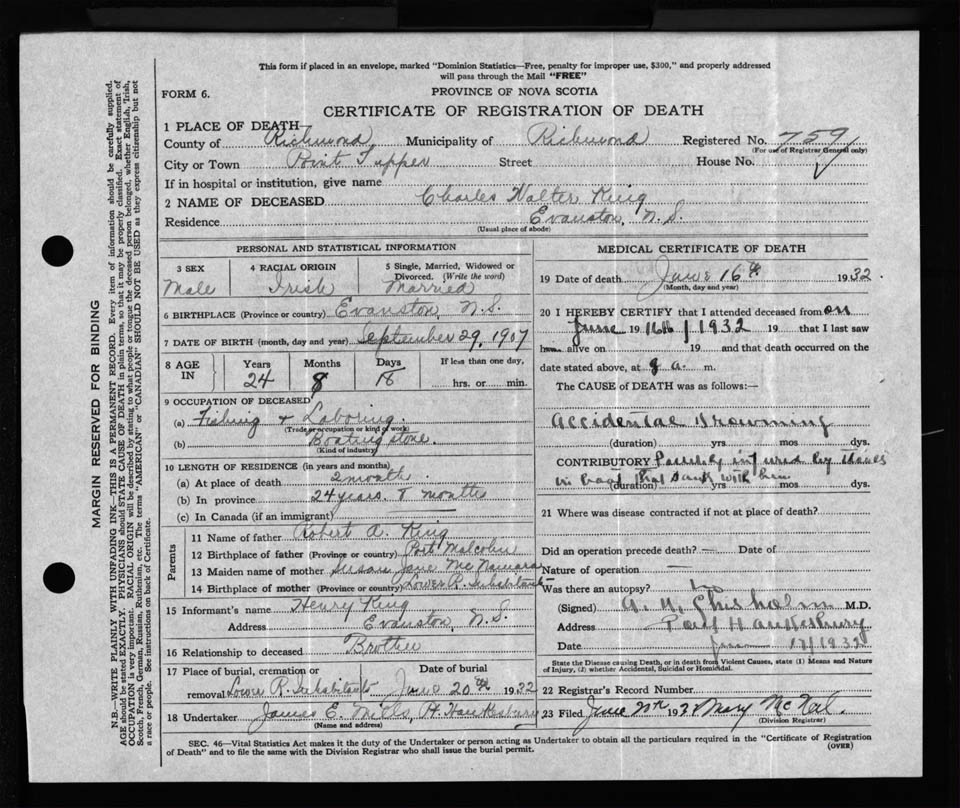 This form if placed in an envelope, marked "Dominion Statistics—Free, penalty for improper use, $300," and properly addressed
will pass through the Mail "FREE"
FORM 6.
PROVINCE OF NOVA SCOTIA
CERTIFICATE OF REGISTRATION OF DEATH
1 PLACE OF DEATH—
County of Richmond Municipality of Richmond Registered No. 759
(For use of Registrar General only)
City or Town Point Tupper Street House No.
If in hospital or institution, give name
2 NAME OF DECEASED Charles Walter King
Residence Evanston, N.S.
(Usual place of abode)
PERSONAL AND STATISTICAL INFORMATION
3 SEX 4 RACIAL ORIGIN 5 Single, Married, Widowed or Divorced. (Write the word)
Male Irish Married
6 BIRTHPLACE (Province or country) Evanston, N.S.
7 DATE OF BIRTH (month, day and year) September 29, 1907
8 AGE IN Years Months Days If less than one day,
24 8 18 hrs. or min.
9 OCCUPATION OF DECEASED
(a) Fishing & Laboring.
(Trade or occupation or kind of work)
(b) Boating stone.
(Kind of industry)
10 LENGTH OF RESIDENCE (in years and months)
(a) At place of death 2 month
(b) In province 24 years. 8 months
(c) In Canada (if an immigrant)
Parents
11 Name of father Robert A. King
12 Birthplace of father (Province or country) Port Malcolm
13 Maiden name of mother Susan Jane McNamara
14 Birthplace of mother (Province or country) Lower R. Inhabitants
15 Informant's name Henry King
Address Evanston, N.S.
16 Relationship to deceased Brother
17 Place of burial, cremation or removal Date of burial
Lower R. Inhabitants June 20th 1932
18 Undertaker James E. Mills, P. Hawkesbury
(Name and address)
MEDICAL CERTIFICATE OF DEATH
19 Date of death June 16th 1932.
(Month, day and year)
20 I HEREBY CERTIFY that I attended deceased from on
June 19 16th/1932 19 that I last saw
h alive on 19 and that death occurred on the
date stated above, at a. m.
The CAUSE of DEATH was as follows:—
Accidental Drowning
(duration) yrs mos dys.
CONTRIBUTORY Possibly injured by stones
in boat that sank with him
(duration) yrs mos dys.
21 Where was disease contracted if not at place of death?
Did an operation precede death? — Date of
Nature of operation —
Was there an autopsy? No
(Signed) Chisholm M.D.
Address Port Hawkesbury
Date June 17/1932
State the Disease causing Death, or in death from Violent Causes, state (1) Means and Nature
of Injury, (2) whether Accidental, Suicidal or Homicidal.
22 Registrar's Record Number
23 Filed June 193 Mary McNeil.
(Division Registrar)
SEC. 46—Vital Statistics Act makes it the duty of the Undertaker or person acting as Undertaker to obtain all the particulars required in the "Certificate of Registration
of Death" and to file the same with the Division Registrar who shall issue the burial permit.
(OVER)
MARGIN RESERVED FOR BINDING
N.B.—WRITE PLAINLY WITH UNFADING INK—THIS IS A PERMANENT RECORD. Every item of information should be carefully supplied.
AGE should be stated EXACTLY. PHYSICIANS should STATE CAUSE OF DEATH in plain terms, so that it may be properly classified. Exact statement of
OCCUPATION is very important. RACIAL ORIGIN will be described by stating to what people or tongue the deceased person belonged, whether English, Irish,
Scotch, French, German, Russian, Ruthenian, etc. The terms "AMERICAN" or "CANADIAN" SHOULD NOT BE USED as they express citizenship but not
a race or people. See instructions on back of Certificate.